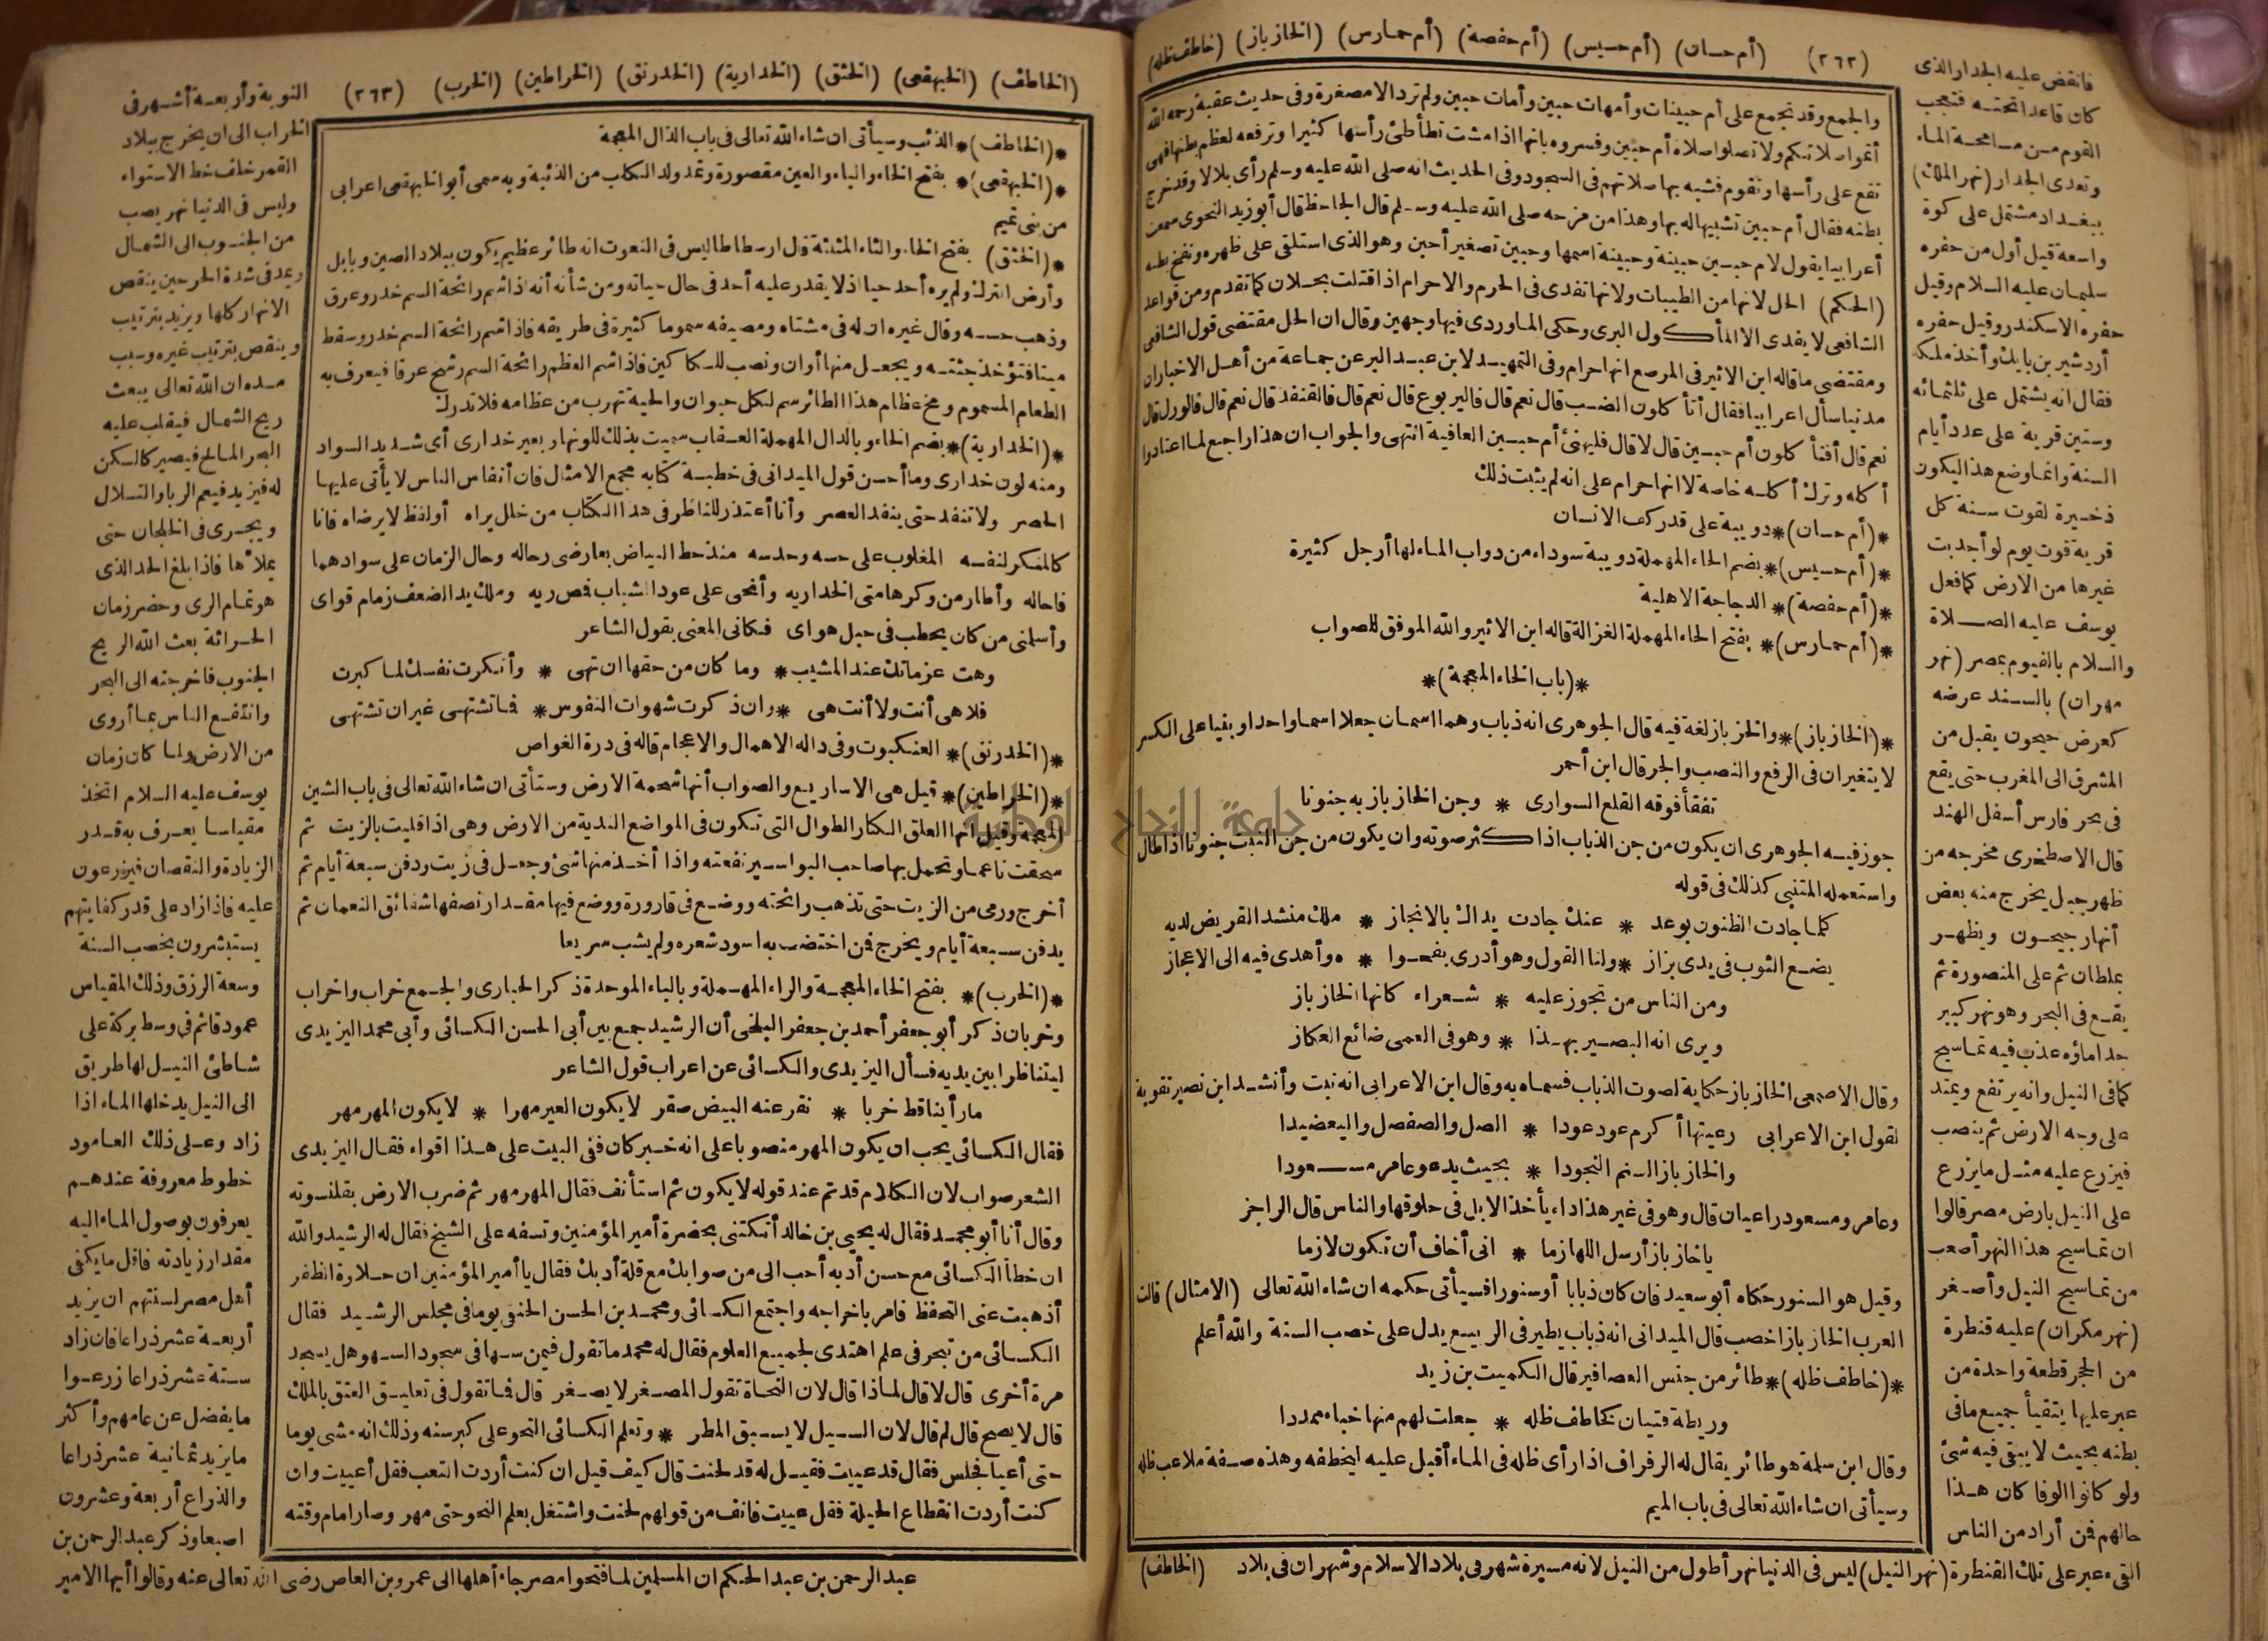 (أم حسان) (أم حسيس) (أم حفصة) (أم حمارس) (الخازباز) (خاطف ظله)
(٢٦٢)
والجمع وقد تجمع على أم حبينات وأمهات حبين وأمات حبين ولم ترد الا مصغرة وفى حديث عقبة رحمه الله
أتموا صلاتكم ولا تصلوا صلاة أم حبين وفسروه بانها اذا مشت تطأطئ رأسها كثيرا وترفعه لعظم بطنها فهى
تقع على رأسها وتقوم فشبه بها صلاتهم فى السجود وفى الحديث انه صلى الله عليه وسلم رأى بلالا وقد خرج
بطنه فقال أم حبين تشبيها له بها وهذا من مزحه صلى الله عليه وسلم قال الجاحظ قال أبو زيد النحوى سمعت
أعرابيا يقول لام حبين حبينة وحبينة اسمها وحبين تصغير أحبن وهو الذى استلقى على ظهره ونفخ بطنه
(الحكم) الحل لانها من الطيبات ولانها تفدى فى الحرم والاحرام اذا قتلت بحلان كما تقدم ومن قواعد
الشافعى لا يفدى الا المأكول البرى وحكى الماوردى فيها وجهين وقال ان الحل مقتضى قول الشافعى
ومقتضى ما قاله ابن الاثير فى المرصع انها حرام وفى التمهيد لابن عبد البر عن جماعة من أهل الاخباران
مدنيا سأل اعرابيا فقال أتأكلون الضب قال نعم قال فاليربوع قال نعم قال فالقنفد قال نعم قال فالورل قال
نعم قال أفتأكلون أم حبين قال لا قال فليهنئ أم حبين العافية انتهى والجواب ان هذا راجع لما اعتادوا
أكله وترك أكله خاصة لا انها حرام على انه لم يثبت ذلك
*(أم حسان)* دويبة على قدر كف الانسان
*(أم حسيس)* بضم الحاء المهملة دويبة سوداء من دواب الماء لها أرجل كثيرة
*(أم حفصة)* الدجاجة الاهلية
*(أم حمارس)* بفتح الحاء المهملة الغزالة قاله ابن الاثير والله الموفق للصواب
*(باب الخاء المعجمة)*
*(الخازباز)* والخزباز لغة فيه قال الجوهرى انه ذباب وهما اسمان جعلا اسما واحدا وبنيا على الكسر
لا يتغيران فى الرفع والنصب والجر قال ابن أحمر
تفقأ فوقه القلع السوارى * وجن الخازباز به جنونا
جوز فيه الجوهرى ان يكون من جن الذباب اذا كثر صوته وان يكون من جن النبت جنونا اذا طال
واستعمله المتنبى كذلك فى قوله
كلما جادت الظنون بوعد * عنك جادت يداك بالانجاز * ملك منشد القريض لديه
يضع الثوب فى يدى بزاز * ولنا القول وهو أدرى بفحوا * ه وأهدى فيه الى الاعجاز
ومن الناس من تجوز عليه * شعراء كانها الخازباز
ويرى انه البصير بهذا * وهو فى العمى ضائع العكاز
وقال الاصمعى الخازباز حكاية لصوت الذباب فسماه به وقال ابن الاعرابى انه نبت وأنشد ابن نصير تقوية
لقول ابن الاعرابى رعيتها أكرم عود عودا * الصل والصفصل واليعضيدا
والخازباز السنم النجودا * بحيث يدعو عامر مسعودا
وعامر ومسعود راعيان قال وهو فى غير هذا داء يأخذ الابل فى حلوقها والناس قال الراجز
يا خازباز أرسل اللهازما * انى أخاف أن تكون لازما
وقيل هو السنور حكاه أبو سعيد فان كان ذبابا أو سنورا فسيأتى حكمه ان شاء الله تعالى (الامثال) قالت
العرب الخازباز اخصب قال الميدانى انه ذباب يطير فى الربيع يدل على خصب السنة والله أعلم
*(خاطف ظله)* طائر من جنس العصافير قال الكميت بن زيد
وريطة فتيان كخاطف ظله * جعلت لهم منها خباء ممددا
وقال ابن سلمة هو طائر يقال له الرفراف اذا رأى ظله فى الماء أقبل عليه ليخطفه وهذه صفة ملاعب ظله
وسيأتى ان شاء الله تعالى فى باب الميم
فانقض عليه الجدار الذى
كان قاعدا تحته فتعجب
القوم من مسامحة الماء
وتعدى الجدار (نهر الملك)
ببغداد مشتمل على كوة
واسعة قيل أول من حفره
سليمان عليه السلام وقيل
حفره الاسكندر وقيل حفره
أردشير بن بابك وأخذ ملكه
فقال انه يشتمل على ثلثمائه
وستين قرية على عدد أيام
السنة وانما وضع هذا ليكون
ذخيرة لقوت سنة كل
قرية قوت يوم لو أجدبت
غيرها من الارض كما فعل
يوسف عليه الصلاة
والسلام بالفيوم بمصر (نهر
مهران) بالسند عرضه
كعرض جيحون يقبل من
المشرق الى المغرب حتى يقع
فى بحر فارس أسفل الهند
قال الاصطخرى مخرجه من
ظهر جبل يخرج منه بعض
أنهار جيحون ويظهر
بملطان ثم على المنصورة ثم
يقع فى البحر وهو نهر كبير
جدا ماؤه عذب فيه تماسيح
كما فى النيل وانه يرتفع ويمتد
على وجه الارض ثم ينصب
فيزرع عليه مثل ما يزرع
على النيل بارض مصر قالوا
ان تماسيح هذا النهر أصعب
من تماسيح النيل وأصغر
(نهر مكران) عليه قنطرة
من الحجر قطعة واحدة من
عبر عليها يتقيأ جميع ما فى
بطنه بحيث لا يبقى فيه شئ
ولو كانوا الوفا كان هذا
حالهم فمن أراد من الناس
القىء عبر على تلك القنطرة (نهر النيل) ليس فى الدنيا نهر أطول من النيل لانه مسيرة شهر فى بلاد الاسلام وشهران فى بلاد
(الخاطف)
(الخاطف) (الخيهقعى) (الخثق) (الخدارية) (الخدرنق) (الخراطين) (الخرب)
(٢٦٣)
*(الخاطف)* الذئب وسيأتى ان شاء الله تعالى فى باب الذال المعجمة
*(الخيهقعى)* بفتح الخاء والياء والعين مقصورة وتمد ولد الكلاب من الذئبة وبه سمى أبو الخيهقعى اعرابى
من بنى تميم
*(الخثق) بفتح الخاء والثاء المثلثة قال ارسطاطاليس فى النعوت انه طائر عظيم يكون ببلاد الصين وبابل
وأرض الترك ولم يره أحد حيا اذ لا يقدر عليه أحد فى حال حياته ومن شأنه أنه اذا شم رائحة السم خدر وعرق
وذهب حسه وقال غيره ان له فى مشتاه ومصيفه سموما كثيرة فى طريقه فاذا شم رائحة السم خدر وسقط
ميتا فتؤخذ جثته ويجعل منها أوان ونصب للسكاكين فاذا شم العظم رائحة السم رشح عرقا فيعرف به
الطعام المسموم ومخ عظام هذا الطائر سم لكل حيوان والحية تهرب من عظامه فلا تدرك
*(الخدارية)* بضم الخاء وبالدال المهملة العقاب سميت بذلك للونها وبعير خدارى أى شديد السواد
ومنه لون خدارى وما أحسن قول الميدانى فى خطبة كتابه مجمع الامثال فان أنفاس الناس لا يأتى عليها
الحصر ولا تنفد حتى ينفد العصر وأنا أعتذر للناظر فى هذا الكتاب من خلل يراه أو لفظ لا يرضاه فانا
كالمنكر لنفسه المغلوب على حسه وحدسه منذ حط البياض بعارضى رحاله وحال الزمان على سوادهما
فاحاله وأطار من وكرها متى الخداريه وأنحى على عود الشباب فمص ريه وملك يد الضعف زمام قواى
وأسلمنى من كان يحطب فى حبل هواى فكانى المعنى بقول الشاعر
وهت عزماتك عند المشيب * وما كان من حقها ان تهى * وأنكرت نفسك لما كبرت
فلا هى أنت ولا أنت هى * وان ذكرت شهوات النفوس * فما تشتهى غير ان تشتهى
*(الخدرنق)* العنكبوت وفى داله الاهمال والاعجام قاله فى درة الغواص
*(الخراطين)* قيل هى الاساريع والصواب أنها شحمة الارض وستأتى ان شاء الله تعالى فى باب الشين
المعجمة وقيل انها العلق الكبار الطوال التى تكون فى المواضع الندية من الارض وهى اذا قليت بالزيت ثم
سحقت ناعما وتحمل بها صاحب البواسير نفعته واذا أخذ منها شئ وجعل فى زيت ودفن سبعة أيام ثم
أخرج ورمى من الزيت حتى تذهب رائحته ووضع فى قارورة ووضع فيها مقدار نصفها شقائق النعمان ثم
يدفن سبعة أيام ويخرج فمن اختضب به اسود شعره ولم يشب سريعا
*(الخرب)* بفتح الخاء المعجمة والراء المهملة وبالباء الموحدة ذكر الحبارى والجمع خراب واخراب
وخربان ذكر أبو جعفر أحمد بن جعفر البلخى أن الرشيد جمع بين أبى الحسن الكسائى وأبى محمد اليزيدى
ليتناظرا بين يديه فسأل اليزيدى والكسائى عن اعراب قول الشاعر
ما رأينا قط خربا * نقر عنه البيض صقر لا يكون العير مهرا * لا يكون المهر مهر
فقال الكسائى يجب ان يكون المهر منصوبا على انه خبر كان ففى البيت على هذا اقواء فقال اليزيدى
الشعر صواب لان الكلام قد تم عند قوله لا يكون ثم استأنف فقال المهر مهر ثم ضرب الارض بقلنسوته
وقال أنا أبو محمد فقال له يحيى بن خالد أتكتنى بحضرة أمير المؤمنين وتسفه على الشيخ فقال له الرشيد والله
ان خطأ الكسائى مع حسن أدبه أحب الى من صوابك مع قلة أدبك فقال يا أمير المؤمنين ان حلاوة الظفر
أذهبت عنى التحفظ فامر باخراجه واجتمع الكسائى ومحمد بن الحسن الحنفى يوما فى مجلس الرشيد فقال
الكسائى من تبحر فى علم اهتدى لجميع العلوم فقال له محمد ما تقول فيمن سها فى سجود السهو هل يسجد
مرة أخرى قال لا قال لماذا قال لان النحاة تقول المصغر لا يصغر قال فما تقول فى تعليق العتق بالملك
قال لا يصح قال لم قال لان السيل لا يسبق المطر * وتعلم الكسائى النحو على كبر سنه وذلك انه مشى يوما
حتى أعيا فجلس فقال قد عييت فقيل له قد لحنت قال كيف قيل ان كنت أردت التعب فقل أعييت وان
كنت أردت انقطاع الحيلة فقل عييت فانف من قولهم لحنت واشتغل بعلم النحو حتى مهر وصار امام وقته
النوبة وأربعة أشهر فى
الخراب الى ان يخرج ببلاد
القمر خلف خط الاستواء
وليس فى الدنيا نهر يصب
من الجنوب الى الشمال
ويمد فى شدة الحر حين ينقص
الانهار كلها ويزيد بترتيب
وينقص بترتيب غيره وسبب
مده ان الله تعالى يبعث
ريح الشمال فيقلب عليه
البحر المالح فيصير كالسكن
له فيزيد فيعم الربا والتلال
ويجرى فى الخلجان حتى
يملأها فاذا بلغ الحد الذى
هو تمام الرى وحضر زمان
الحراثة بعث الله الريح
الجنوب فاخرجته الى البحر
وانتفع الناس بما أروى
من الارض ولما كان زمان
يوسف عليه السلام اتخذ
مقياسا يعرف به قدر
الزيادة والنقصان فيزرعون
عليه فاذا زاد على قدر كفايتهم
يستبشرون بخصب السنة
وسعة الرزق وذلك المقياس
عمود قائم فى وسط بركة على
شاطئ النيل لها طريق
الى النيل يدخلها الماء اذا
زاد وعلى ذلك العامود
خطوط معروفة عندهم
يعرفون بوصول الماء اليه
مقدار زيادته فاقل ما يكفى
أهل مصر لسنتهم ان يزيد
أربعة عشر ذراعا فان زاد
ستة عشر ذراعا زرعوا
ما يفضل عن عامهم وأكثر
ما يزيد ثمانية عشر ذراعا
والذراع أربعة وعشرون
اصبعا وذكر عبد الرحمن بن
عبد الرحمن بن عبد الحكم ان المسلمين لما فتحوا مصر جاء أهلها الى عمرو بن العاص رضى الله تعالى عنه وقالوا أيها الامير
جامعة النجاح الوطنية